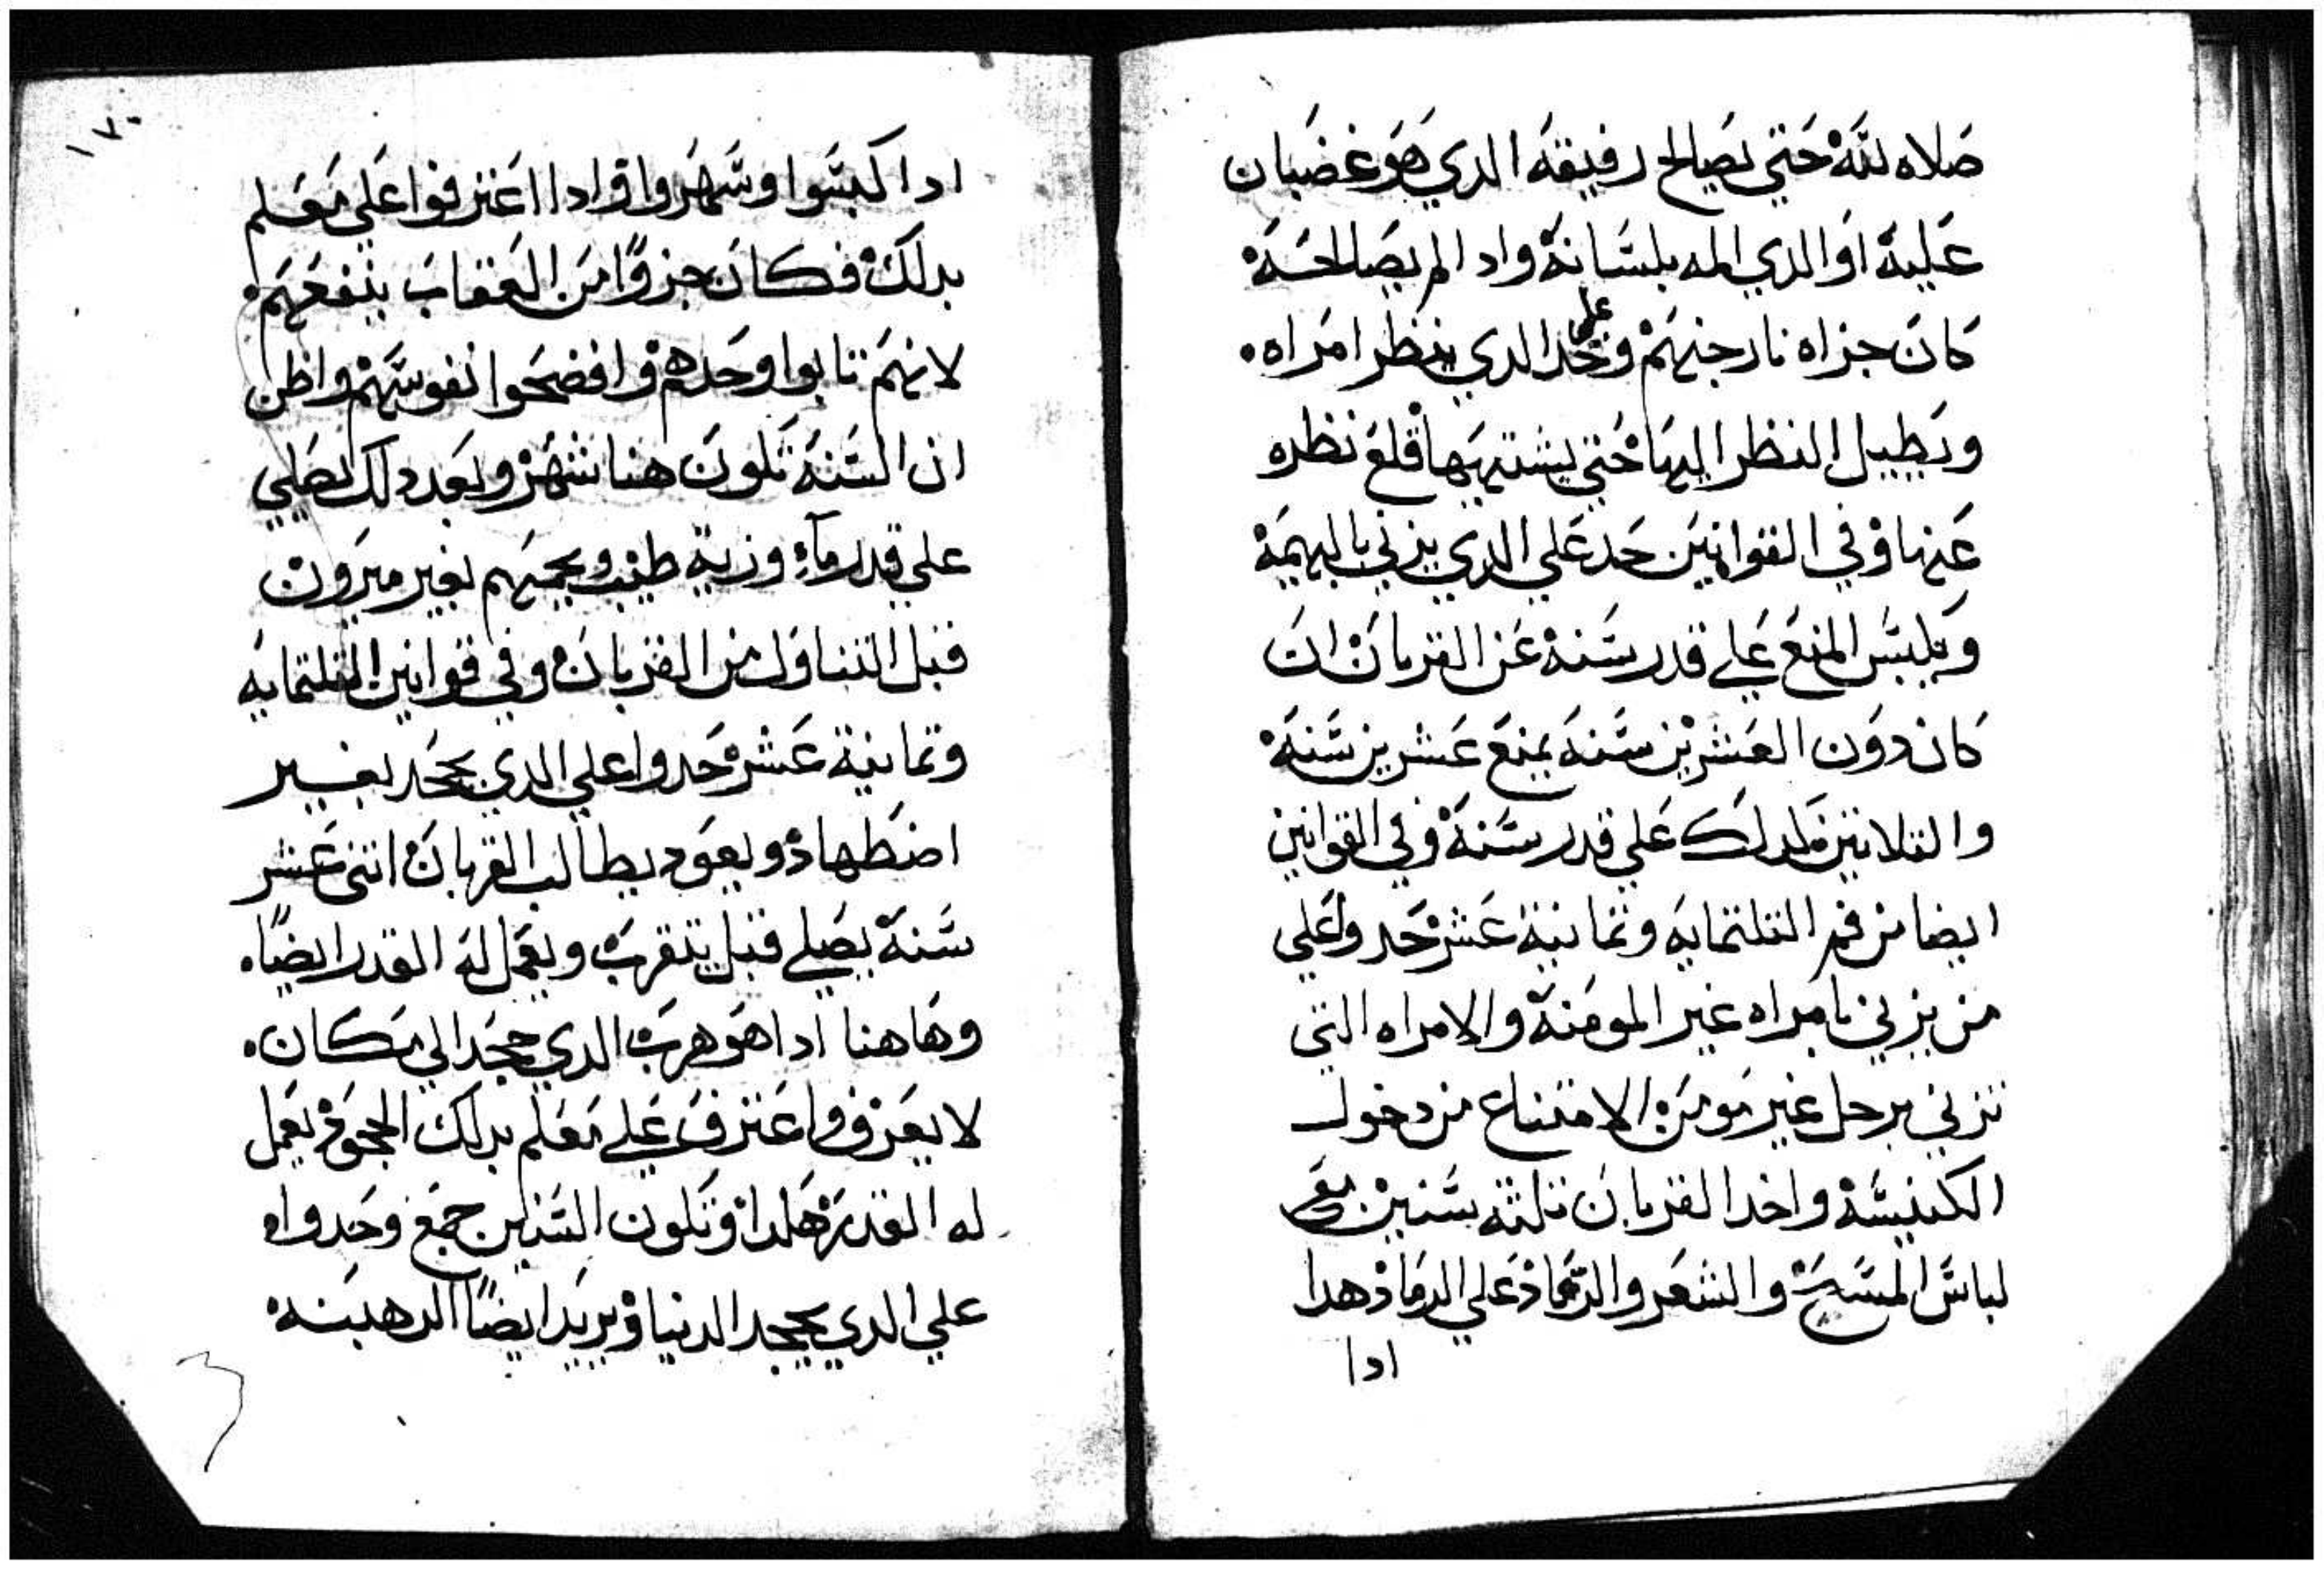 صلاه لله حتي يصالح رفيقه الدي هو غضبان
عليه او الدي المه بلسانه وادا لم يصالحه
كان جزاه نار جهنم وحد علي الدي ينظر امراه
ويطيل النظر اليها حتي يشتهيها قلع نظره
عنها وفي القوانين حد علي الدي يزني بالبهيمه
ويلبس المنع علي قدر سنه عن القربان ان
كان دون العشرين سنه يمنع عشرين سنه
والتلاتين كدلك علي قدر سنه وفي القوانين
ايضا من فم التلتمايه وتمانية عشر حدوا علي
من يزني بامراه غير المومنه والامراه التي
تزني برجل غير مومن الامتناع من دخول
الكنيسه واخد القربان تلته سنين مع
لباس المسح والشعر والرماد علي الرماد هدا
ادا
١٧٠
ادا كبسوا وشهروا وادا اعترفوا علي معلم
بدلك فكان جزوًا من العقاب ينفعهم
لانهم تابوا وحدهم وافضحوا نفوسهم واظن
ان السنه تكون هنا شهر وبعد دلك يصلي
علي قدر مآءٍ وزيت طيب ويحميهم بغير ميرون
قبل التناول من القربان وفي قوانين التلتمايه
وتمانية عشر حدوا علي الدي يجحد بغير
اضطهاد ويعود يطالب القربان اتني عشر
سنه يصلي قبل يتقرب ويعمل له القدر ايضًا
وهاهنا ادا هو هرب الدي جحد الي مكان
لا يعرف واعترف علي معلم بدلك الجحود يعمل
له القدر هكدا وتكون السنين جمع وحدوا
علي الدي يجحد الدنيا ويريد ايضًا الرهبنه